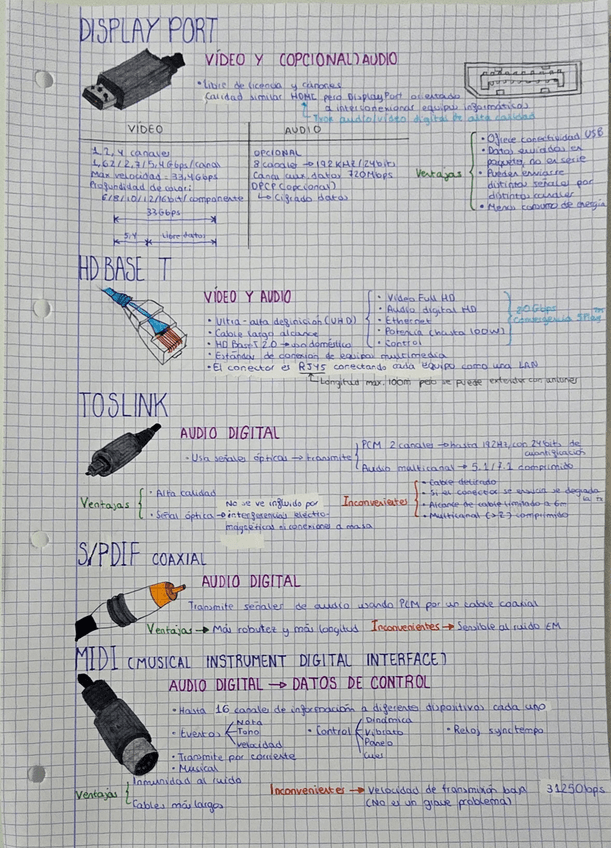 DISPLAY PORT
VÍDEO Y (OPCIONAL) AUDIO
• Libre de licencia y cánones
Calidad similar HDMI pero DisplayPort orientado
a interconexionar equipos informáticos
Tx de audio/vídeo digital de alta calidad
VIDEO
1, 2, 4 canales
1,62/2,7/5,4Gbps/canal
Max velocidad - 33,4Gbps
Profundidad de color:
6/8/10/12/16bit/componente
33Gbps
5,4
Libre datos
AUDIO
OPCIONAL
8 canales → 192KHz/24bits
Canal aux datos 720Mbps
DPCP (opcional)
↳ Cifrado datos
Ventajas
• Ofrece conectividad USB
• Datos enviados en
paquetes, no en serie
• Pueden enviarse
distintas señales por
distintos canales
• Menos consumo de energía
HD BASE T
VÍDEO Y AUDIO
• Ultra-alta definición (UHD)
• Cable largo alcance
• HD BaseT 2.0 → uso doméstico
• Estándar de conexión de equipos multimedia
• El conector es RJ45 conectando cada equipo como una LAN
Longitud max. 100m pero se puede extender con uniones
• Vídeo Full HD
• Audio digital HD
• Ethernet
• Potencia (hasta 100W)
• Control
20Gbps
Convergencia 5Play TM
TOSLINK
AUDIO DIGITAL
• Usa señales ópticas → transmite
PCM 2 canales → hasta 192Hz, con 24 bits de
cuantificación
Audio multicanal → 5.1/7.1 comprimido
Ventajas
• Alta calidad
• Señal óptica → No se ve influido por
interferencias electro-
magnéticas ni conexiones a masa
Inconvenientes
• Cable delicado
• Si el conector se ensucia se degrada
la Tx
• Alcance de cable limitado a 6m
• Multicanal (>2) comprimido
S/PDIF COAXIAL
AUDIO DIGITAL
Transmite señales de audio usando PCM por un cable coaxial
Ventajas → Más robustez y más longitud
Inconvenientes → Sensible al ruido EM
MIDI (MUSICAL INSTRUMENT DIGITAL INTERFACE)
AUDIO DIGITAL → DATOS DE CONTROL
• Hasta 16 canales de información a diferentes dispositivos cada uno
• Eventos
Nota
Tono
Velocidad
• Control
Dinámica
Vibrato
Paneo
Cues
• Reloj sync tempo
• Transmite por corriente
• Musical
Ventajas
Inmunidad al ruido
Cables más largos
Inconvenientes → Velocidad de transmisión baja 31250bps
(No es un grave problema)